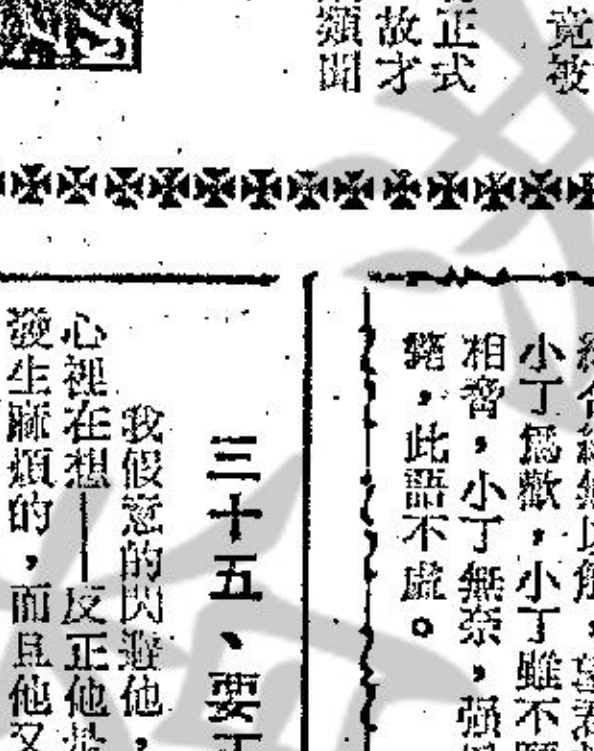 竟被
正式
故才
類聞
小丁爲歡，小丁雖不
相脅，小丁無奈，强
，此語不虛。
三十五、要
我假意的閃避他，
心裡在想——反正他是
發生麻煩的，而且他又